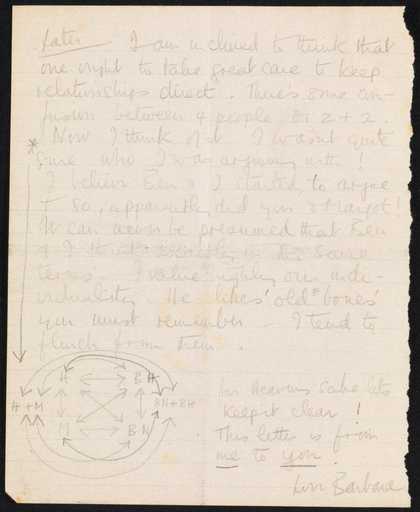 Later I am inclined to think that
one ought to take great care to keep
relationships direct. There's some con-
fusion between 4 people, & 2 + 2.
* Now I think of it I wasn't quite
sure who I was arguing with!
I believe Ben & I started to argue
& so, apparently, did you & Margot!
It can never be presumed that Ben
& I think exactly in the same
terms. I value highly our indi-
viduality. He likes 'old bones'
you must remember - I tend to
flinch from them.
H BH
H + M BN + BH
M BN
For Heavens Sake lets
keep it clear!
This letter is from
me to you.
Love Barbara